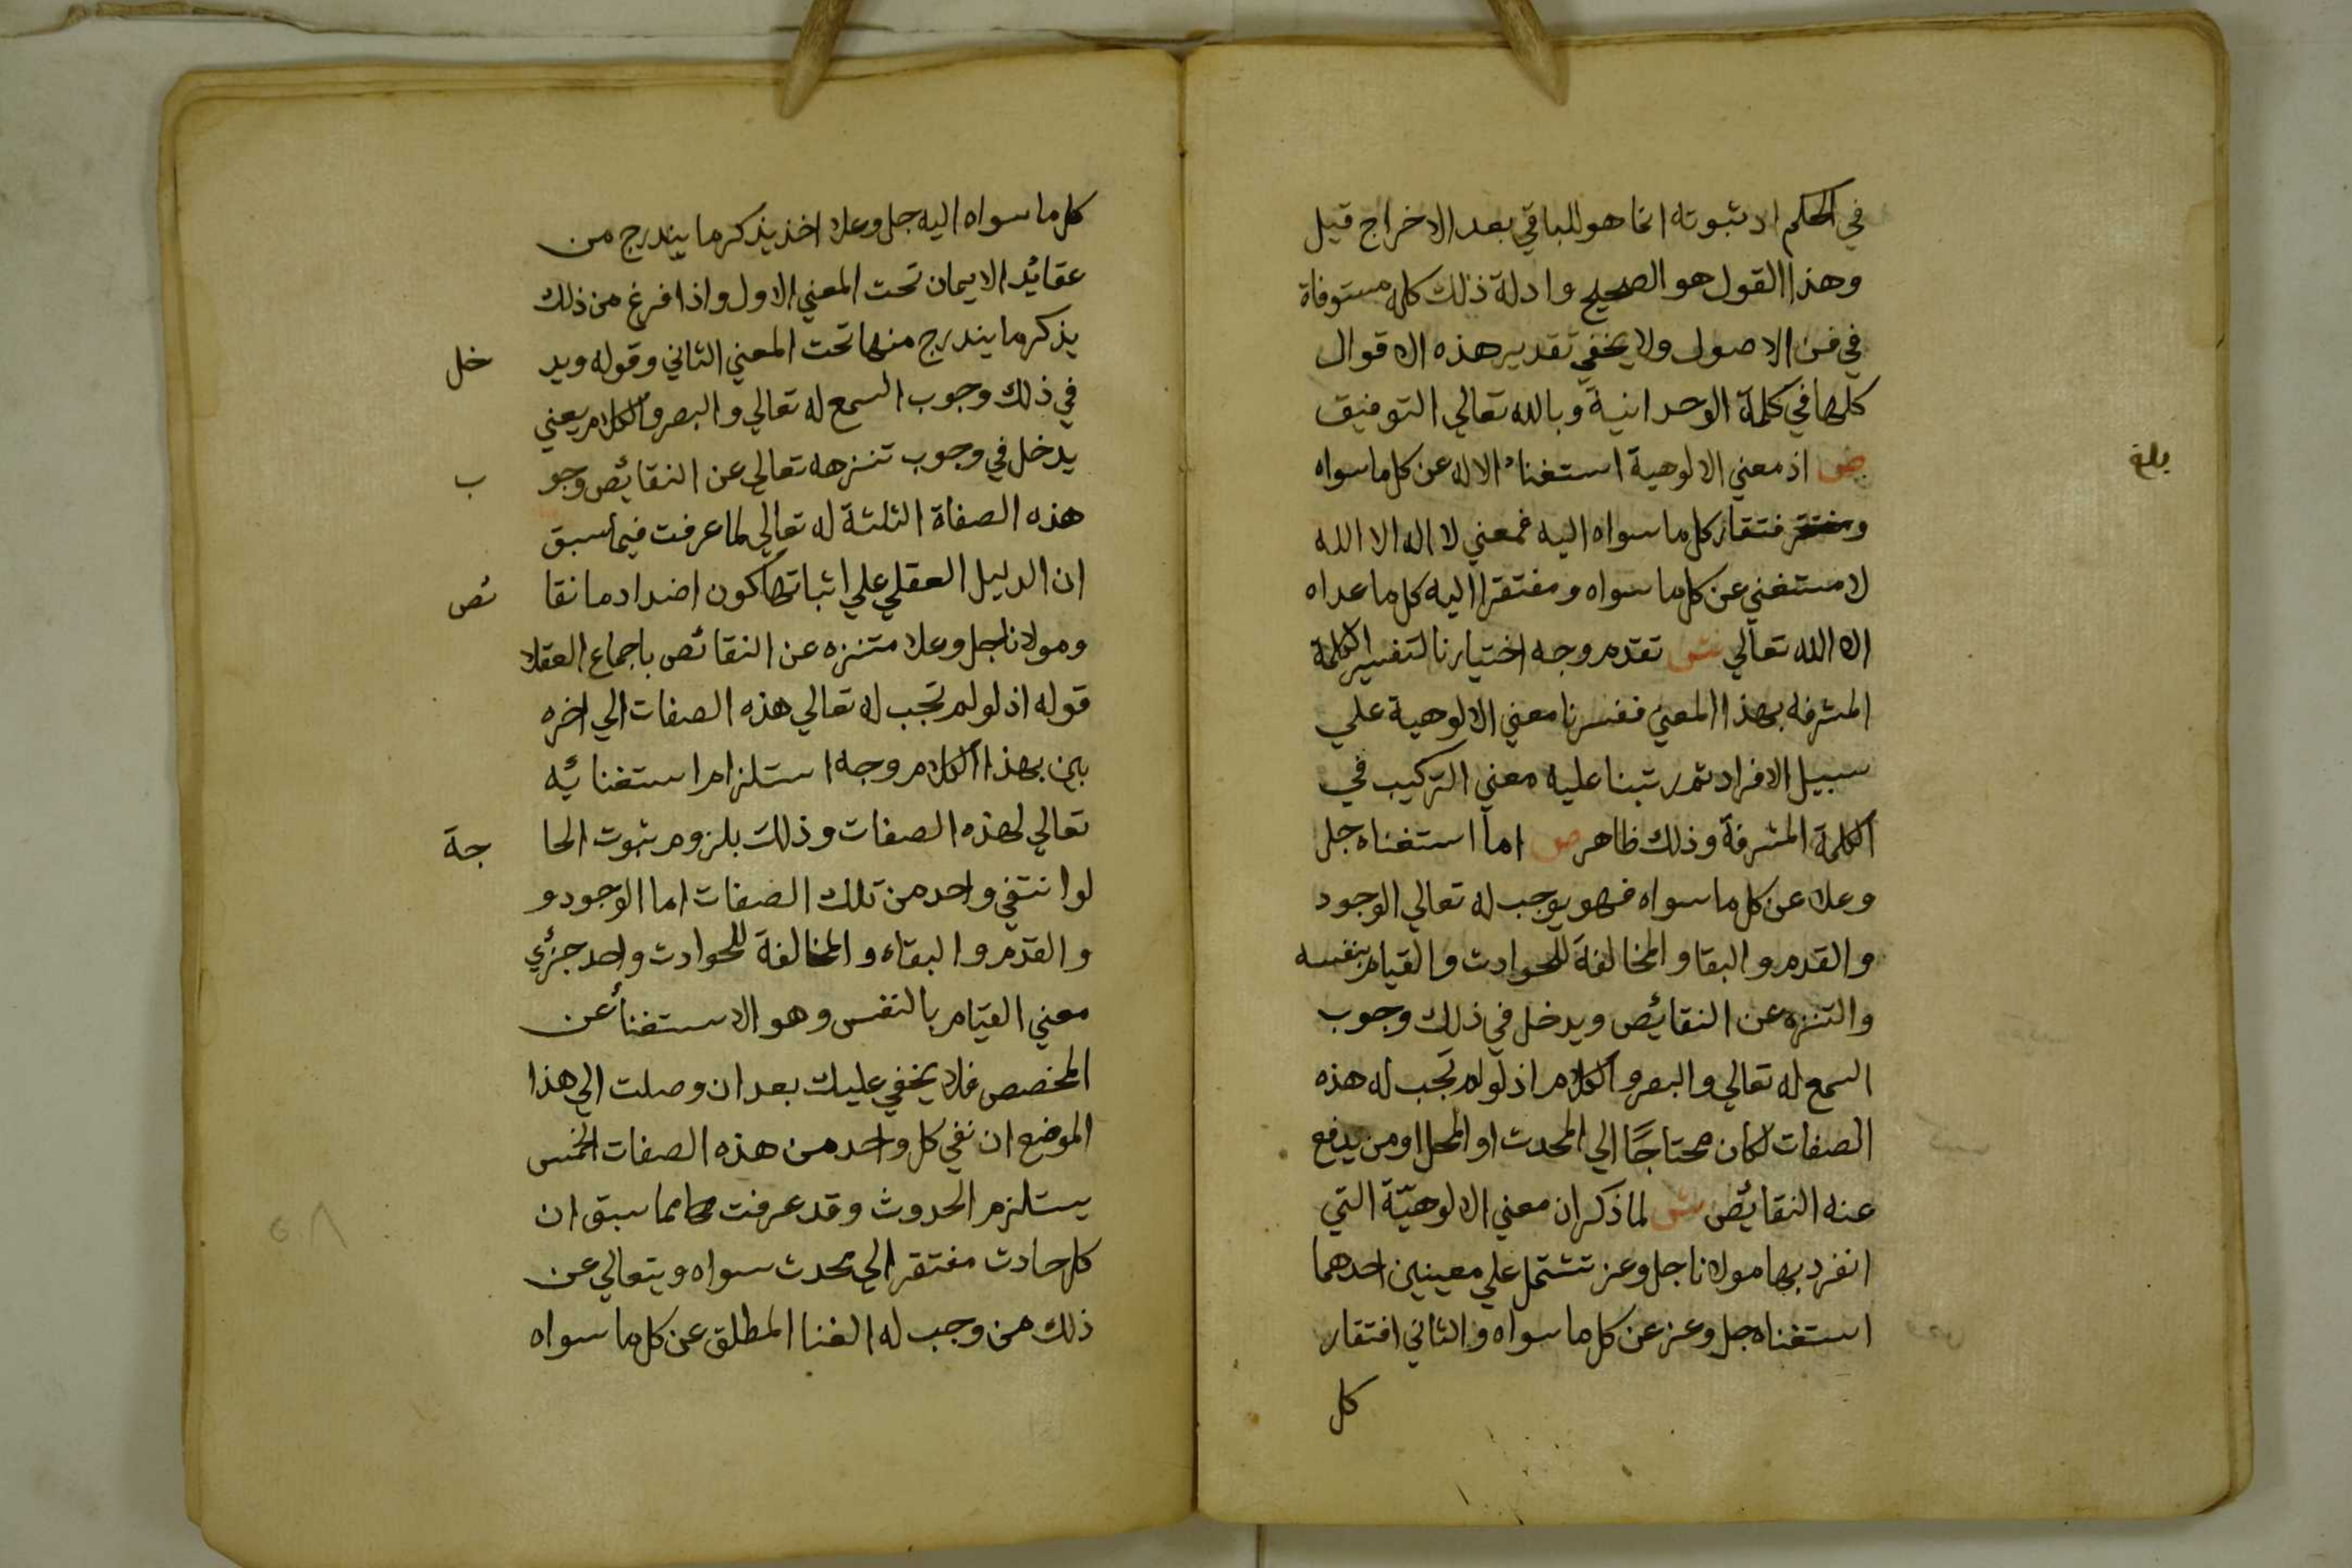 في الحكم اد ثبوته انما هو للباقي بعد الاخراج قيل
وهذا القول هو الصحيح وادلة ذلك كله مستوفاة
في فن الاصول ولا يخفي تقدير هذه الاقوال
كلها في كلمة الوحدانية وبالله تعالي التوفيق
ص اذ معني الالوهية استغناء الاله عن كل ما سواه
بلغ
وفتقار كل ما سواه اليه فمعني لا اله الا الله
لا مستغني عن كل ما سواه ومفتقرا اليه كل ما عداه
الا الله تعالي ش تقدم وجه اختيارنا لتفسير الكلمة
المشرفه بهذا المعني ففسرنا معني الالوهية علي
سبيل الافراد ثم رتبنا عليه معني التركيب في
الكلمة المشرفة وذلك ظاهر ص اما استغناه جل
وعلا عن كل ما سواه فهو يوجب له تعالي الوجود
والقدم والبقا والمخالفة للحوادث والقيام بنفسه
والتنزه عن النقائص ويدخل في ذلك وجوب
السمع له تعالي والبصر والكلام اذ لو لم تجب له هذه
الصفات لكان محتاجا الي المحدث او المحل او من يدفع
عنه النقائص ش لما ذكر ان معني الالوهيّة التي
انفرد بها مولانا جل وعز تشتمل علي معينين احدهما
استغناه جل وعز عن كل ما سواه والثاني افتقار
كل
كل ما سواه اليه جل وعلا اخذ يذكر ما يندرج من
عقائد الايمان تحت المعني الاول واذا فرغ من ذلك
يذكر ما يندرج منها تحت المعني الثاني وقوله ويد خل
في ذلك وجوب السمع له تعالي والبصر والكلام يعني
يدخل في وجوب تنزهه تعالي عن النقائص وجو ب
هذه الصفاة الثلثة له تعالي لما عرفت فيما سبق
ان الدليل العقلي علي اثباتها كون اضدادها نقا ئص
ومولانا جل وعلا متنزه عن النقائص باجماع العقلا
قوله اذ لو لم تجب له تعالي هذه الصفات الي اخره
بين بهذا الكلام وجه استلزام استغنائه
تعالي لهذه الصفات وذلك بلزوم ثبوت الحا جة
لو انتفي واحد من تلك الصفات اما الوجود و
والقدم والبقاء والمخالفة للحوادث واحد جزئي
معني القيام بالنفس وهو الاستغنا عن
المخصص فلا يخفي عليك بعد ان وصلت الي هذا
الموضع ان نفي كل واحد من هذه الصفات الخمس
يستلزم الحدوث وقد عرفت مما سبق ان
كل حادث مفتقر الي محدث سواه ويتعالي عن
ذلك من وجب له الغنا المطلق عن كل ما سواه